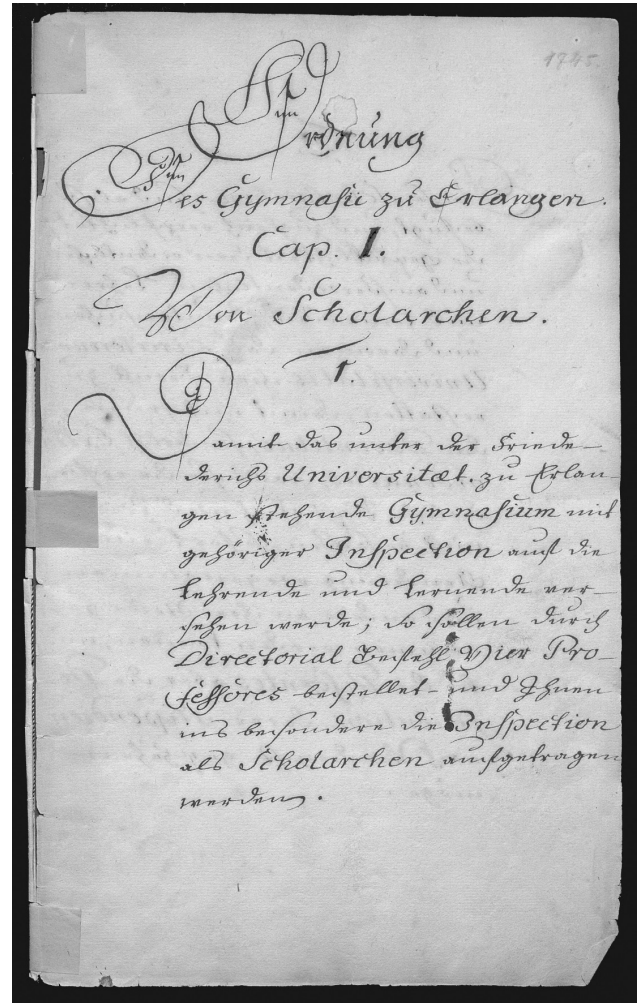 1745.
Ordnung
Des Gymnasii zu Erlangen.
Cap. I.
Von Scholarchen.
1.
Damit das unter der Friede-
derichs Universitæt. zu Erlan-
gen stehende Gymnasium mit
gehöriger Inspection auf die
Lehrende und Lernende ver-
sehen werde; so sollen durch
Directorial Befehl Vier Pro-
fessores bestellet und Ihnen
ins besondere die Inspection
als Scholarchen aufgetragen
werden.